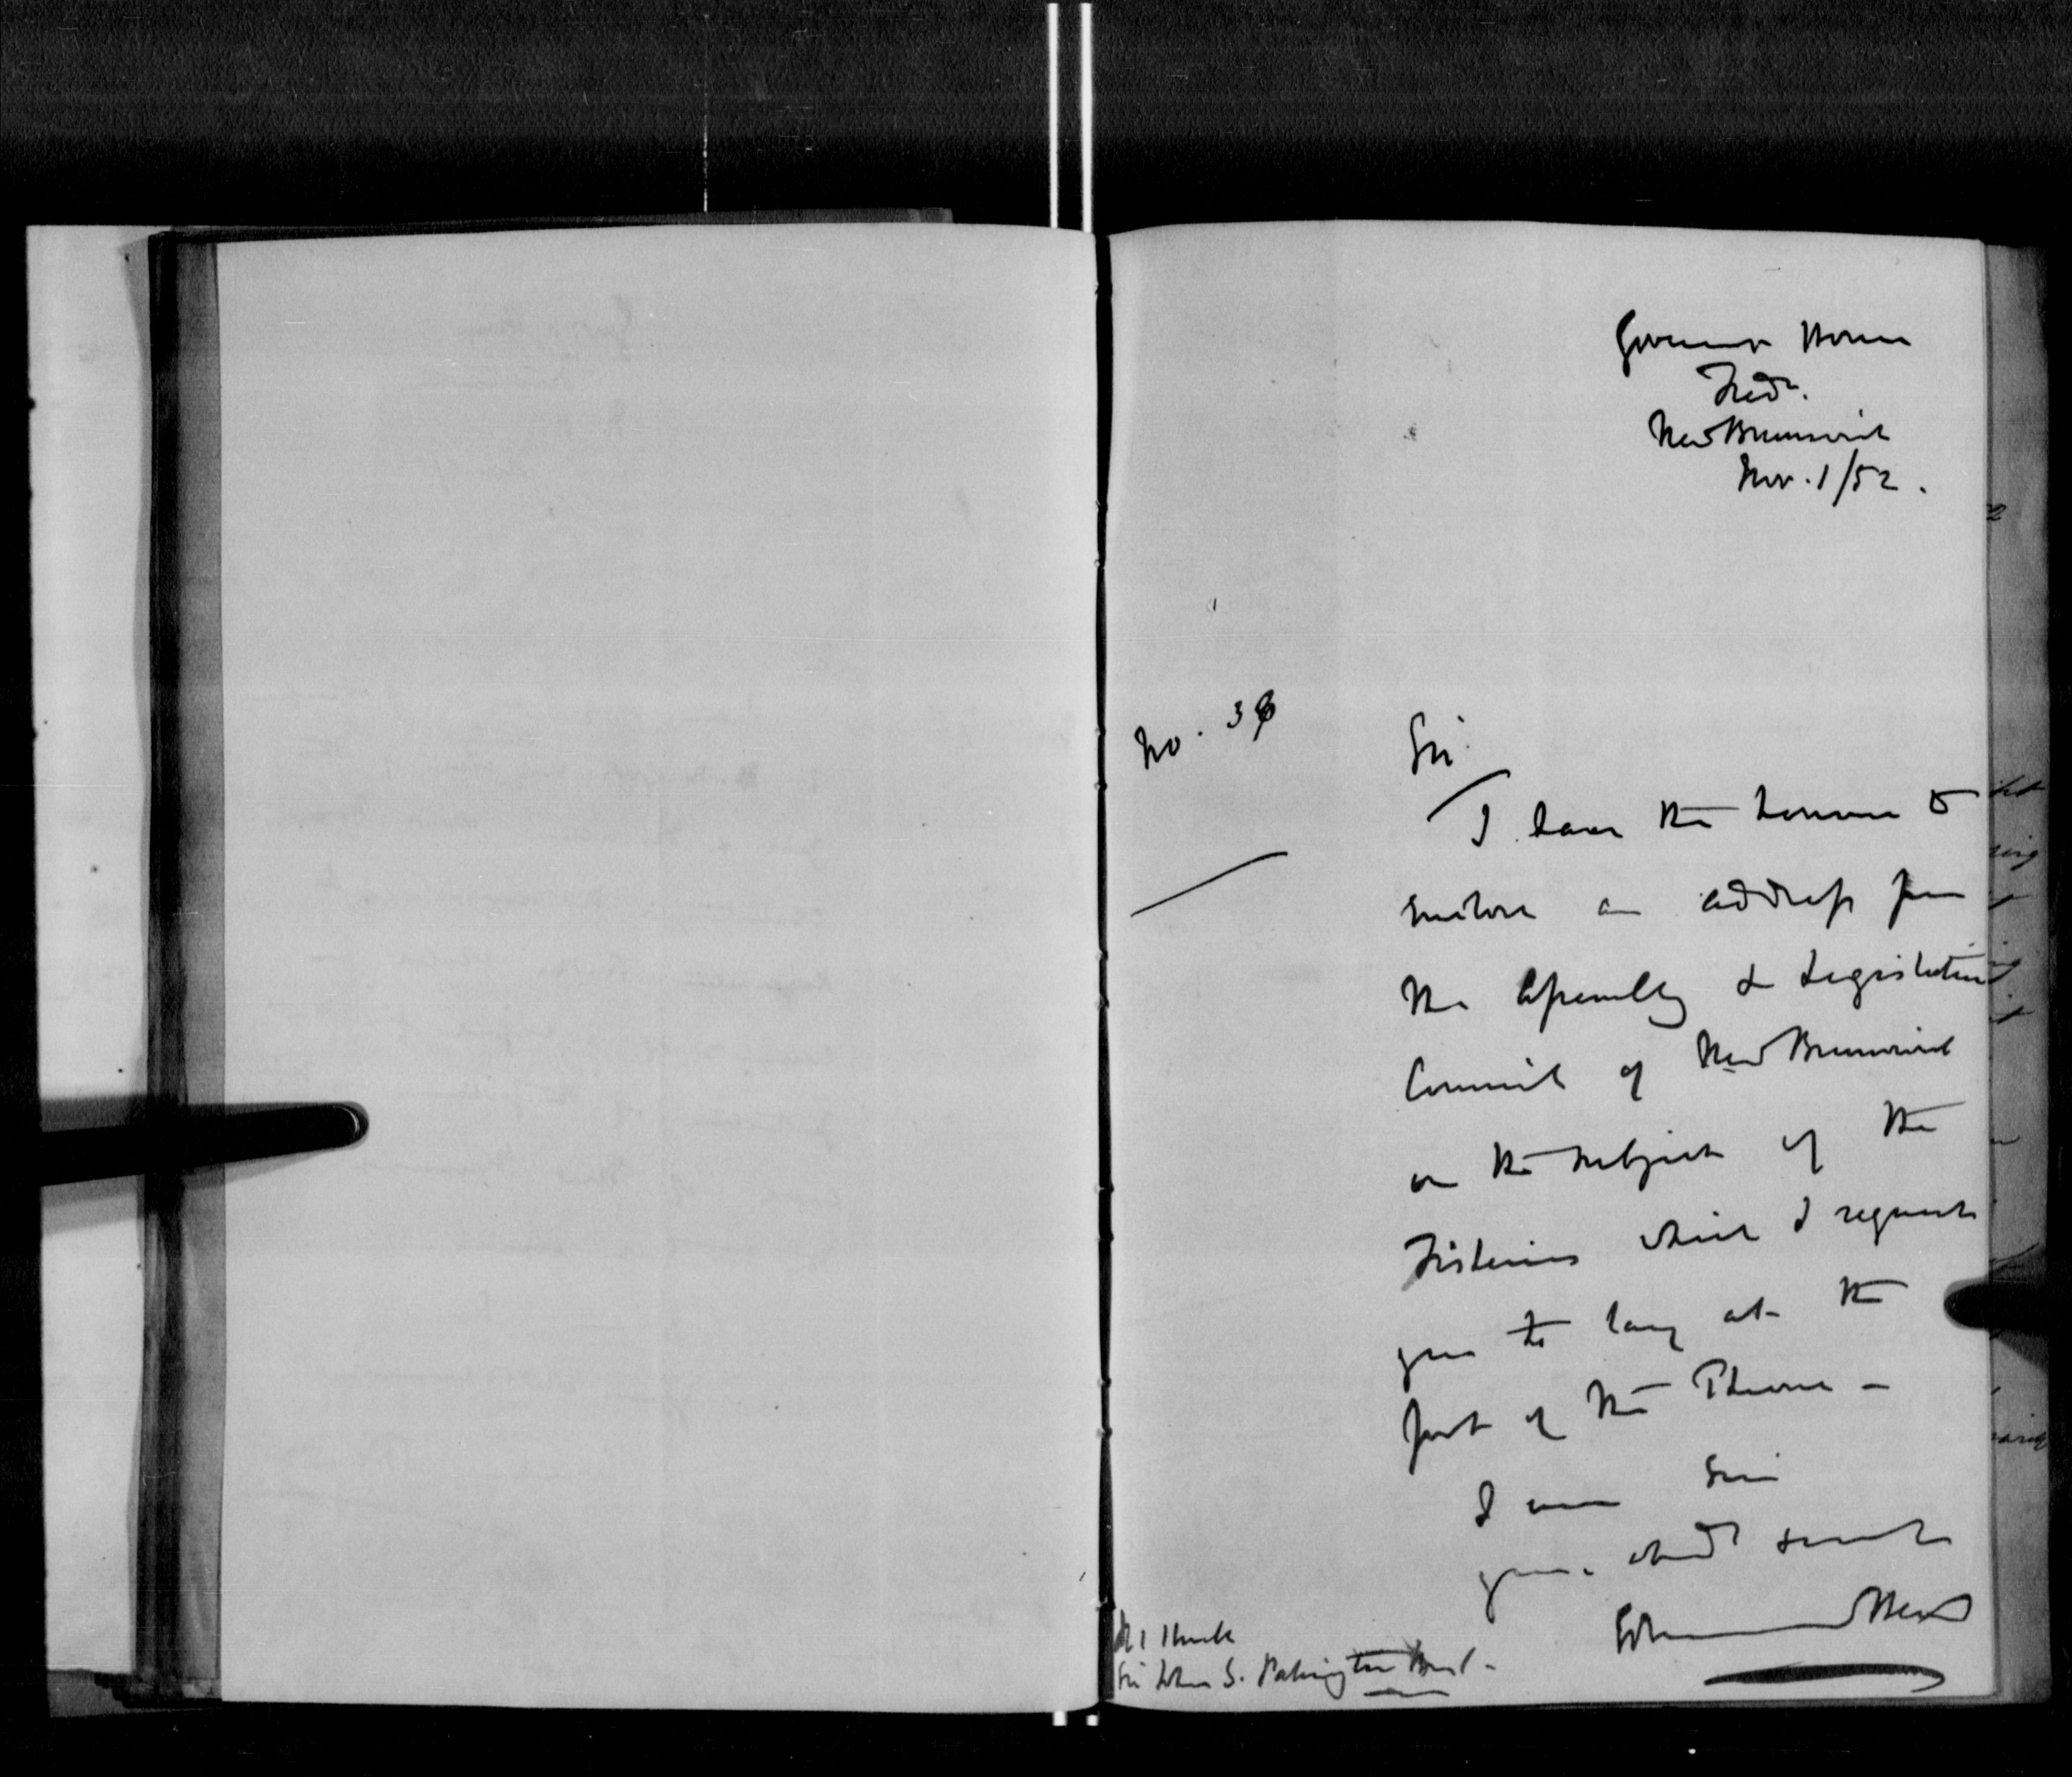 Government House
Fredn.
New Brunswick
Nov. 1/52.
No. 36
Sir
I have the honour to
enclose an address from
the Assembly & Legislative
Council of New Brunswick
on the subject of the
Fisheries which I request
you to lay at the
foot of the Throne -
I am Sir
your obedt servt
Edmund Head
Sir John S. Pakington Bart -